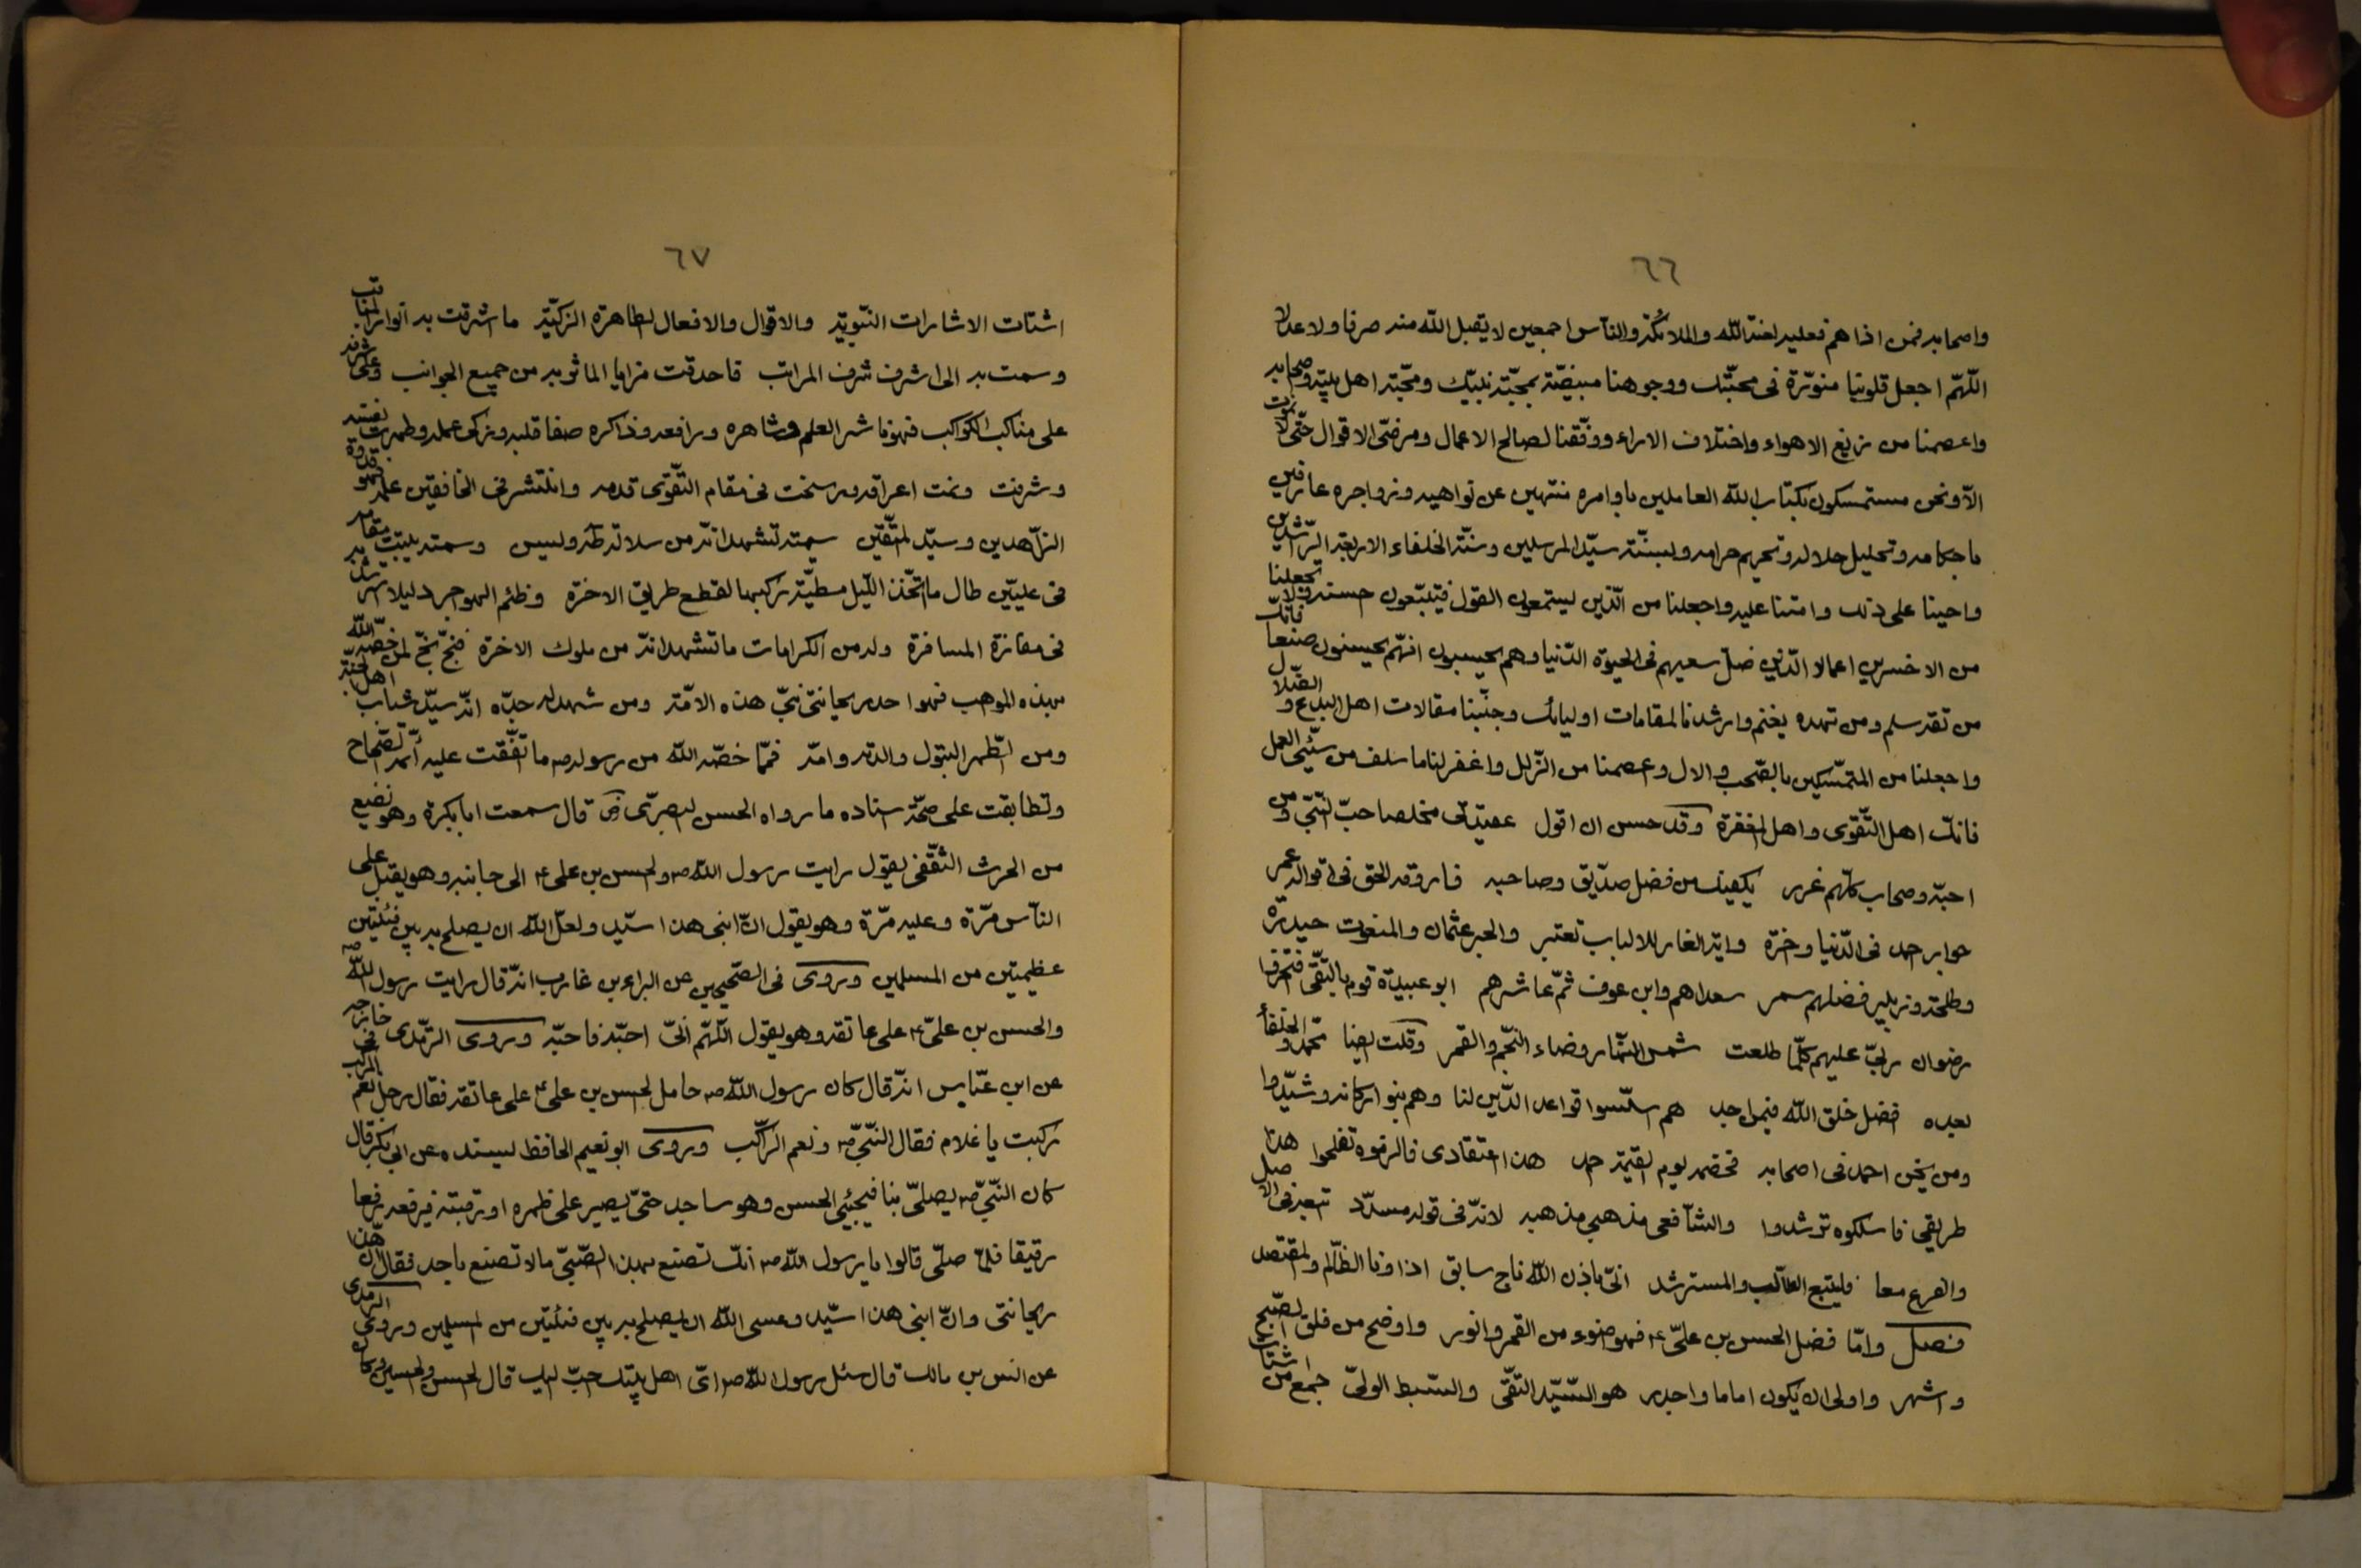 ٦٦
واصحابه فمن اذاهم فعليه لعنة الله والملائكة والناس اجمعين لا يقبل الله منه صرفا ولا عدلا
اللّهمّ اجعل قلوبنا منوّرة فى محبّتك ووجوهنا مبيضّة بمحبّة نبيّك ومحبّة اهل بيته وصحابه
واعصمنا من زيغ الاهواء واختلاف الاراء ووفّقنا لصالح الاعمال ومرضّى الاقوال حتّى لا نموت
الاّ ونحن مستمسكون بكتاب الله العاملين باوامره منتهين عن نواهيه وزواجره عارفين
باحكامه وتحليل حلاله وتحريم حرامه وبسنّة سيّد المرسلين وسنّة الخلفاء الاربعة الرّاشدين
واحينا على ذلك وامتنا عليه واجعلنا من الّذين يستمعون القول فيتّبعون حسنه ولا تجعلنا
من الاخسرين اعمالا الّذين ضلّ سعيهم فى الحيوة الدّنيا وهم يحسبون انّهم يحسنون صنعا فانّك
من تقه سلم ومن تهده يغنم وارشدنا لمقامات اوليائك وجنّبنا مقالات اهل البدع و الضّلال
واجعلنا من المتمسّكين بالصّحب والال وعصمنا من الزّلل واغفر لنا ما سلف من سيّئ العمل
فانك اهل التّقوى واهل المغفرة وقد حسن ان اقول عقيدتى مخلصا حبّ النّبىّ ومن
احبّه وصحاب كلّهم غرر يكفيك من فضل صدّيق وصاحبه فاروقه الحق فى اقواله عمر
جوابر احمد فى الدّنيا وخرة واية الغار للالباب تعتبر والحبر عثمان والمنعوت حيدرة
وطلحة وزبير فضلهم سمر سعداهم وابن عوف ثمّ عاشرهم ابو عبيدة قوم بالتّقى فتخروا
رضوان ربّى عليهم كلّما طلعت شمس النّهار وضاء النّجم والقمر وقلت ايضا محمّد والخلفا
بعده افضل خلق الله فيما اجد هم اسّسوا قواعد الدّين لنا وهم بنوا اركانه وشيّدوا
ومن يخن احمد فى اصحابه فخصمه يوم القيمة احمد هذا اعتقادى فالزموه تفلحوا هذا
طريقى فاسلكوه ترشدوا والشّافعى مذهبى مذهبه لانّه فى قوله مسدّد تتبعه فى الاصل
والفرع معا فليتبع الطّالب والمسترشد انّى باذن الله ناج سابق اذا ونا الظّالم والمقتصد
فصل وامّا فضل الحسن بن علىّ ع فهو اضوء من القمر وانور واوضح من فلق الصّبح
واشهر واولى ان يكون اماما واجدر هو السّيّد التّقىّ والسّبط الولىّ جمع من اشتات
٦٧
اشتات الاشارات النّبويّة والاقوال والافعال الطاهرة الزكيّة ما شرقت به انوار المناقب
وسمت به الى اشرف شرف المراتب فاحدقت مزايا الماثر به من جميع الجوانب وعلى شرفه
على مناكب الكواكب فهو ناشر العلم وشاهره ورافعه وذاكره صفا قلبه وزكى عمله وطهرت نفسه
وشرفت ونمت اعراقه ورسخت فى مقام التّقوى قدمه وانتشر فى الخافقين علمه فهو قدوة
الزّاهدين وسيّد المتّقين سمته تشهد انّه من سلالة طه وليس وسمته يثبت مقامه
فى علّيّين طال ما اتّخذ اللّيل مطيّة يركبها لقطع طريق الاخرة وظلم الهواجر دليلا يرشد به
فى مفازة المسافرة وله من الكرامات ما تشهد انّه من ملوك الاخرة فبخّ بخّ لمن خصّه الله
بهذه المواهب فهو احد ريحانتى نبىّ هذه الامّة ومن شهد له جدّه انّه سيّد شباب اهل الجنّة
ومن الطّهر البتول والدته وامّه فممّا خصّه الله من رسوله ص ما اتّفقت عليه ائمّة الصّحاح
وتطابقت على صحّة اسناده ما رواه الحسن البصرىّ رض قال سمعت ابا بكرة وهو نفيع
من الحرث الثّقفى يقول رايت رسول الله ص والحسن بن على ع الى جانبه وهو يقبل على
النّاس مرّة وعليه مرّة وهو يقول انّ ابنى هذا سيّد ولعلّ الله ان يصلح به بين فئتين
عظيمتين من المسلمين وروى فى الصّحيحين عن البراء بن عازب انّه قال رايت رسول الله ص
والحسن بن علىّ ع على عاتقه وهو يقول اللّهمّ انّى احبّه فاحبّه وروى التّرمذى فى
عن ابن عبّاس انّه قال كان رسول الله ص حامل الحسن بن على ع على عاتقه فقال رجل نعم المركب
ركبت يا غلام فقال النّبىّ ص ونعم الرّاكب وروى ابو نعيم الحافظ بسنده عن ابى بكر قال
كان النّبىّ ص يصلّى بنا فيجئى الحسن وهو ساجد حتّى يصير على ظهره او رقبته فيرفعه رفعا
رقيقا فلمّا صلّى قالوا يا رسول الله ص انّك تصنع بهذا الصّبىّ ما لا تصنع باحد فقال انّ هذا
ريحانتى وانّ ابنى هذا سيّد وعسى الله ان يصلح به بين فئتين من المسلمين وروى التّرمذى
عن انس بن مالك قال سئل رسول الله ص اىّ اهل بيتك احبّ اليك قال الحسن والحسين وكان